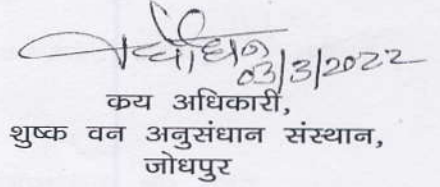 03/3/2022
कय अधिकारी,
शुष्क वन अनुसंधान संस्थान,
जोधपुर